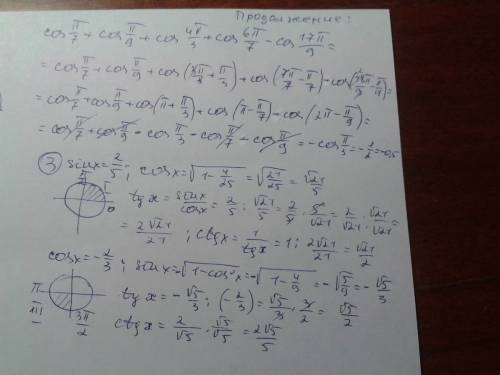 Продолжение:
cos π/7 + cos π/9 + cos 4π/3 + cos 6π/7 − cos 17π/9 =
= cos π/7 + cos π/9 + cos(3π/3 + π/3) + cos(7π/7 − π/7) − cos(18π/9 − π/9) =
= cos π/7 + cos π/9 + cos(π + π/3) + cos(π − π/7) − cos(2π − π/9) =
= cos π/7 + cos π/9 − cos π/3 − cos π/7 − cos π/9 = − cos π/3 = −1/2 = −0,5
③ sinx = 2/5; cosx = √(1 − 4/25) = √(21/25) = √21/5
π/2 I 0 tgx = sinx/cosx = 2/5 : √21/5 = 2/5 · 5/√21 = 2/√21 · √21/√21 =
= 2√21/21; ctgx = 1/tgx = 1 : 2√21/21 = √21/2
cosx = −2/3; sinx = −√(1−cos²x) = −√(1 − 4/9) = −√(5/9) = −√5/3
π III 3π/2 tgx = −√5/3 : (−2/3) = √5/3 · 3/2 = √5/2
ctgx = 2/√5 · √5/√5 = 2√5/5